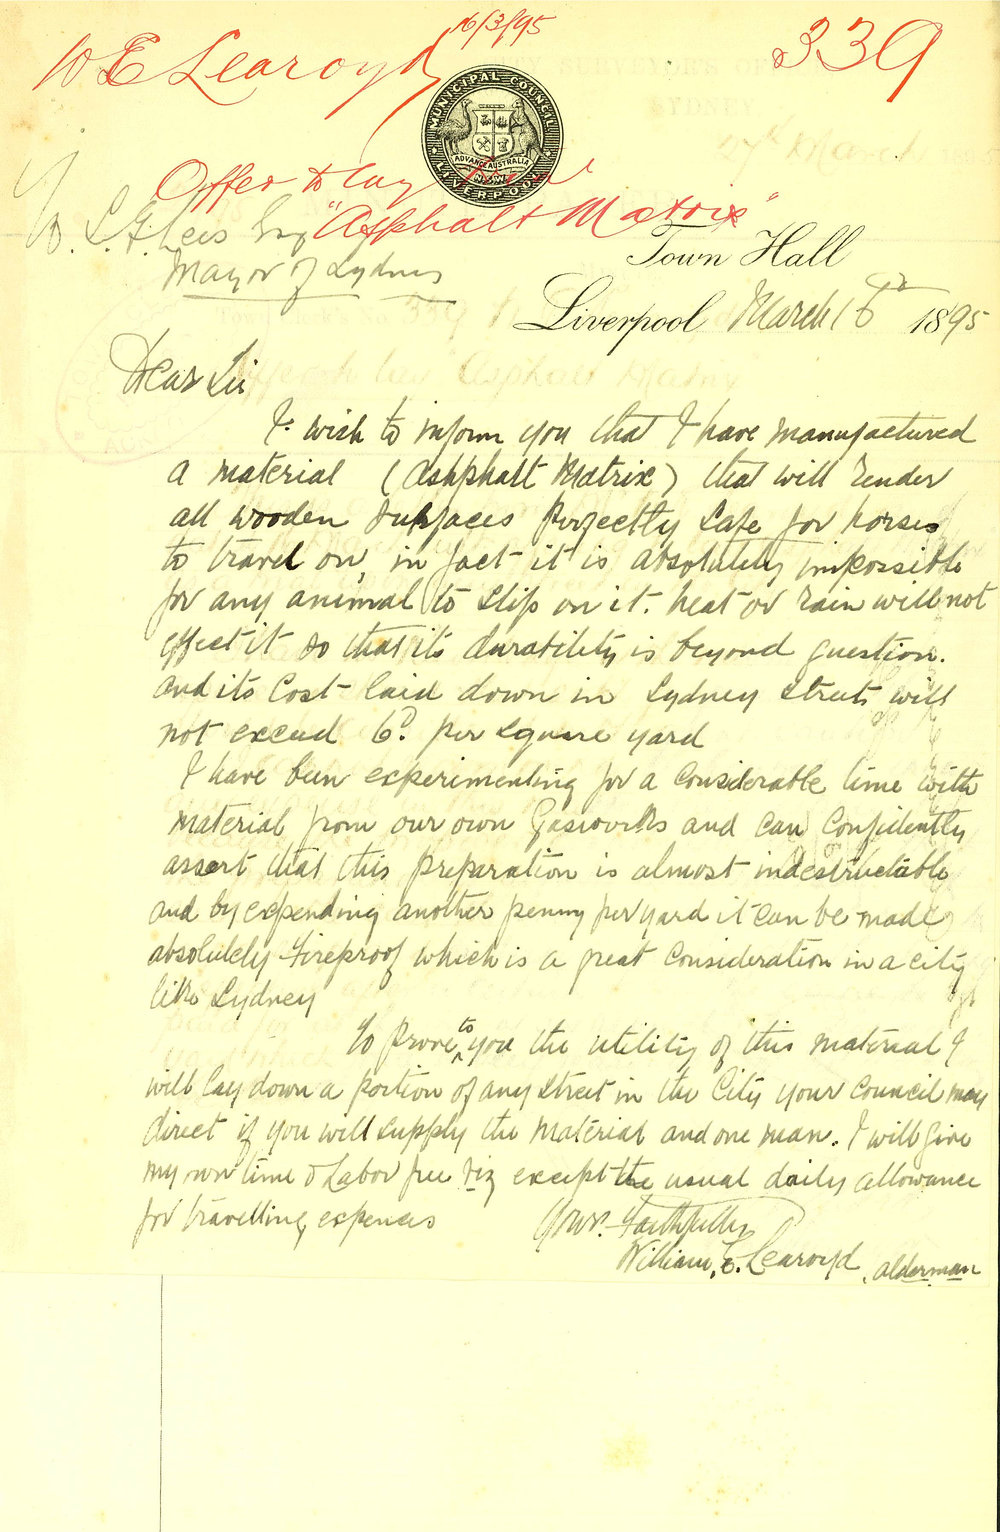 W E Learoyd 16/3/95 339
MUNICIPAL COUNCIL
ADVANCE AUSTRALIA
N.S.W.
LIVERPOOL
Offer to lay
"Asphalt Matrix"
To. S. G. Lees Esq
Mayor of Sydney
Town Hall
Liverpool March 16 1895
Dear Sir
I wish to inform you that I have manufactured
a material (Ashphalt Matrix) that will render
all wooden surfaces perfectly safe for horses
to travel on, in fact it is absolutely impossible
for any animal to slip on it. heat or rain will not
effect it so that its durability is beyond question.
and its cost laid down in Sydney Streets will
not exceed 6d. per square yard
I have been experimenting for a considerable time with
material from our own Gasworks and can confidently
assert that this preparation is almost indestructable
and by expending another penny per yard it can be made
absolutely Fireproof which is a great consideration in a city
like Sydney
To prove to you the utility of this material I
will lay down a portion of any street in the City your Council may
direct if you will supply the material and one man. I will give
my own time & Labor free viz except the usual daily allowance
for travelling expenses
Yours Faithfully
William E. Learoyd, alderman